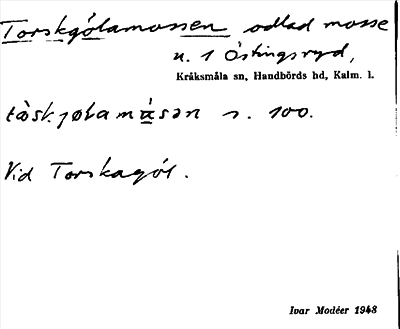 Torskgölamossen odlad mosse
u. 1 Östingsryd,
Kråksmåla sn, Handbörds hd, Kalm. l.
tàskjølamásən s. 100.
Vid Torskagöl.
Ivar Modéer 1948